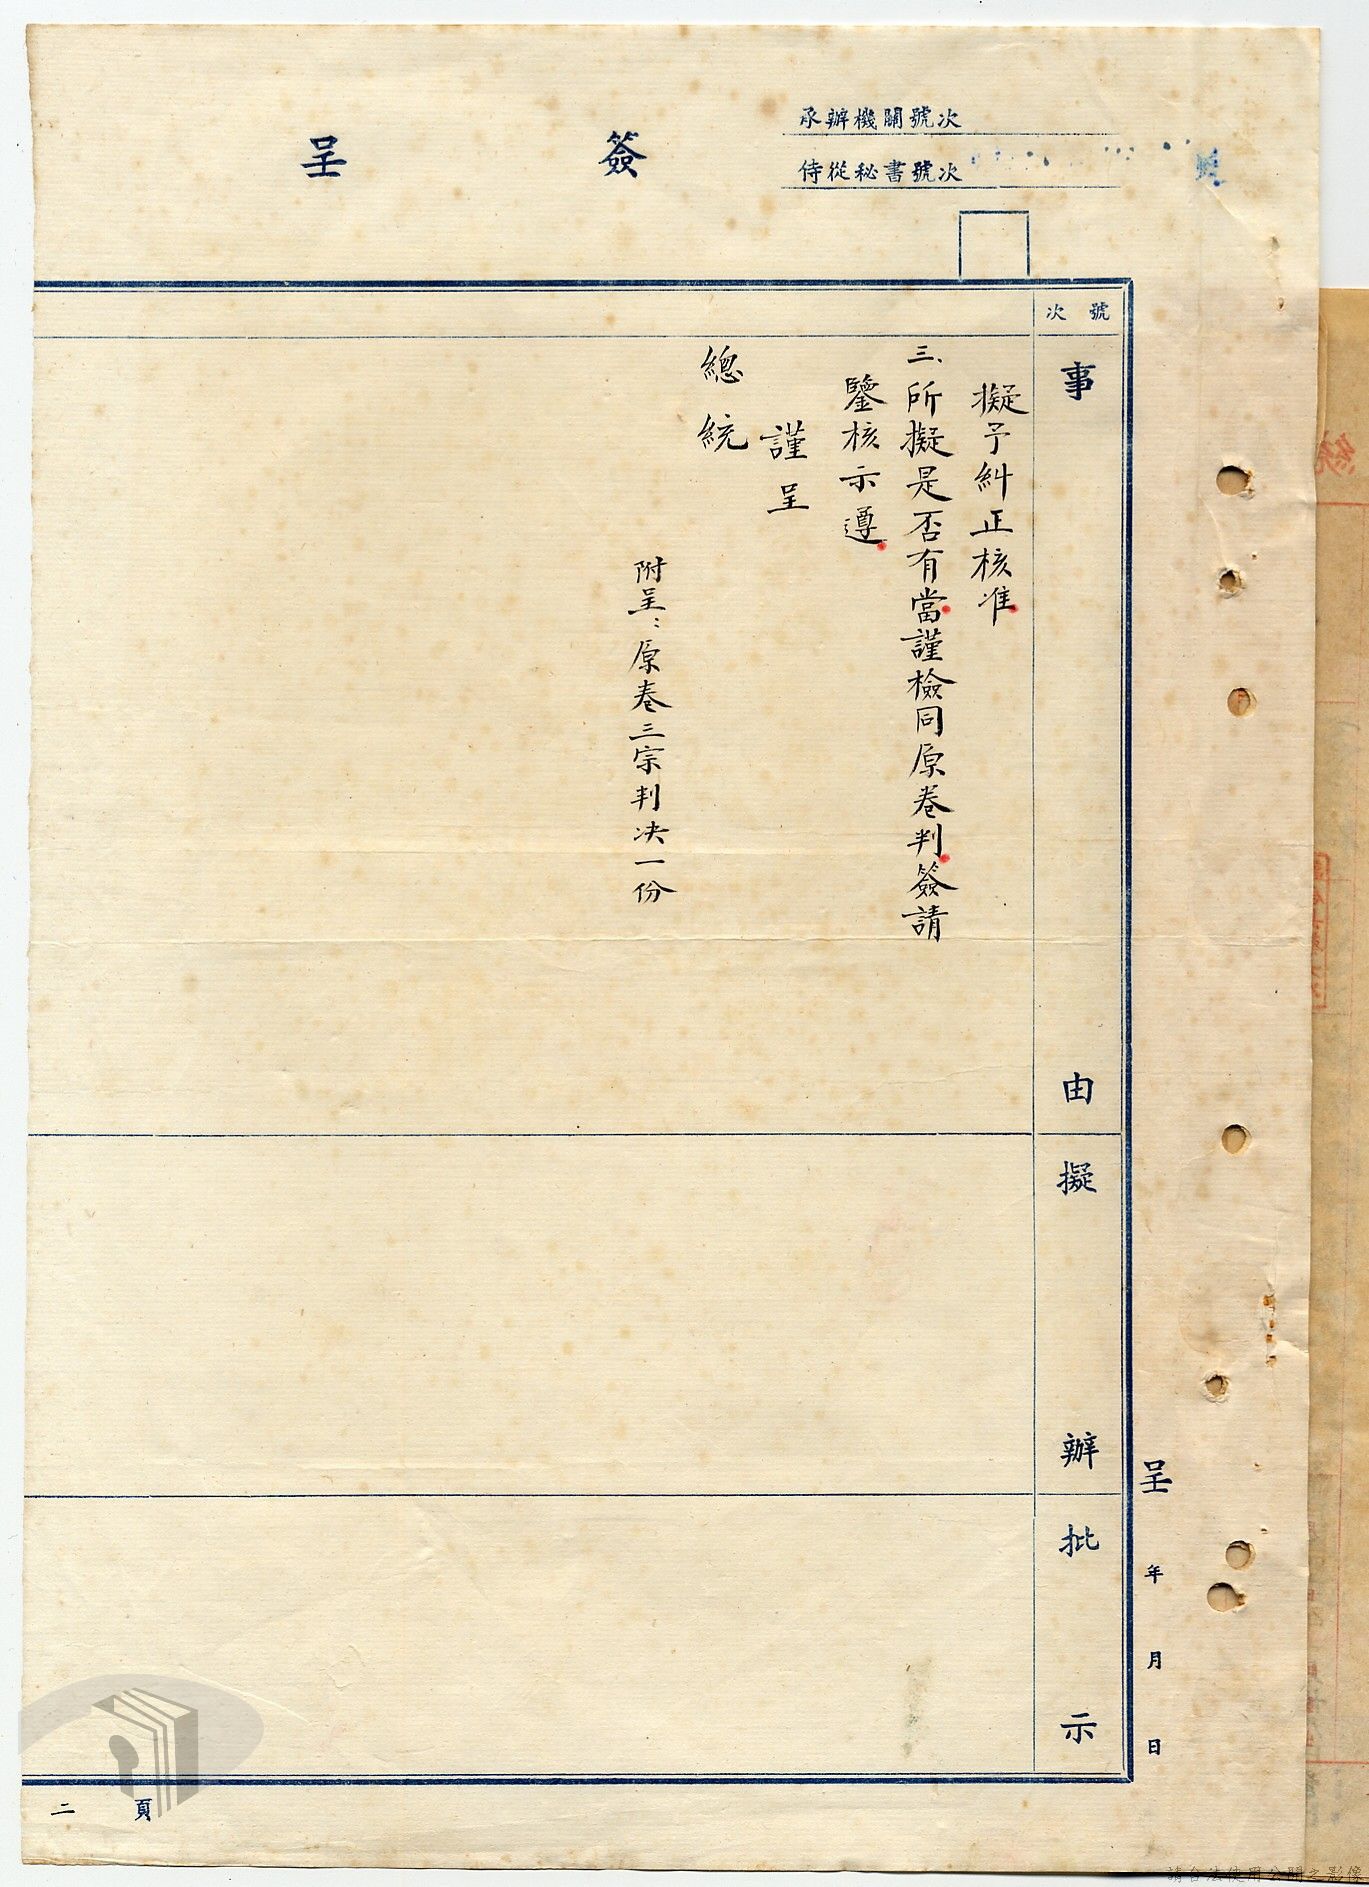 簽呈
承辦機關號次
侍從秘書號次
號次
事由
擬辦
批示
呈 年 月 日
擬予糾正核准
三、所擬是否有當謹檢同原卷判簽請
鑒核示遵
謹呈
總統
附呈:原卷三宗判决一份
二頁
請合法使用公開之影像